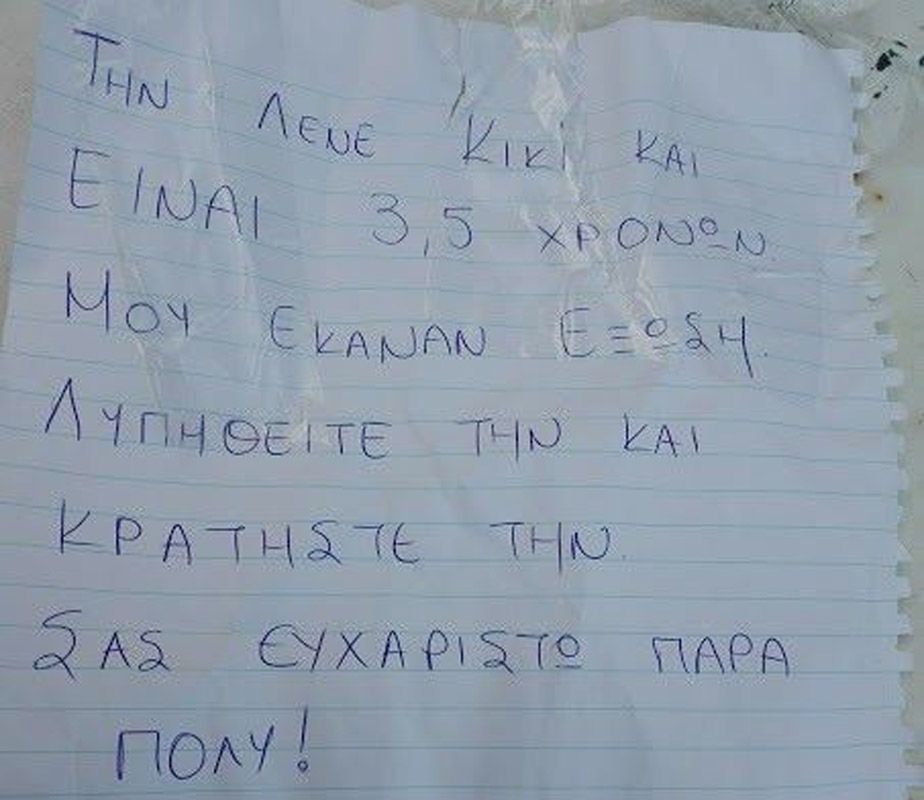 ΤΗΝ ΛΕΝΕ ΚΙΚΙ ΚΑΙ
ΕΙΝΑΙ 3,5 ΧΡΟΝΩΝ
ΜΟΥ ΕΚΑΝΑΝ ΕΞΩΣΗ.
ΛΥΠΗΘΕΙΤΕ ΤΗΝ ΚΑΙ
ΚΡΑΤΗΣΤΕ ΤΗΝ.
ΣΑΣ ΕΥΧΑΡΙΣΤΩ ΠΑΡΑ
ΠΟΛΥ!